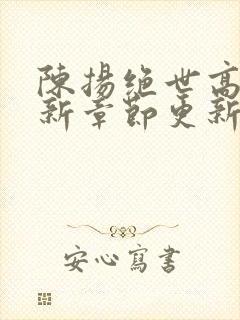 陳揚絕世高
新章節更新
安心寫書